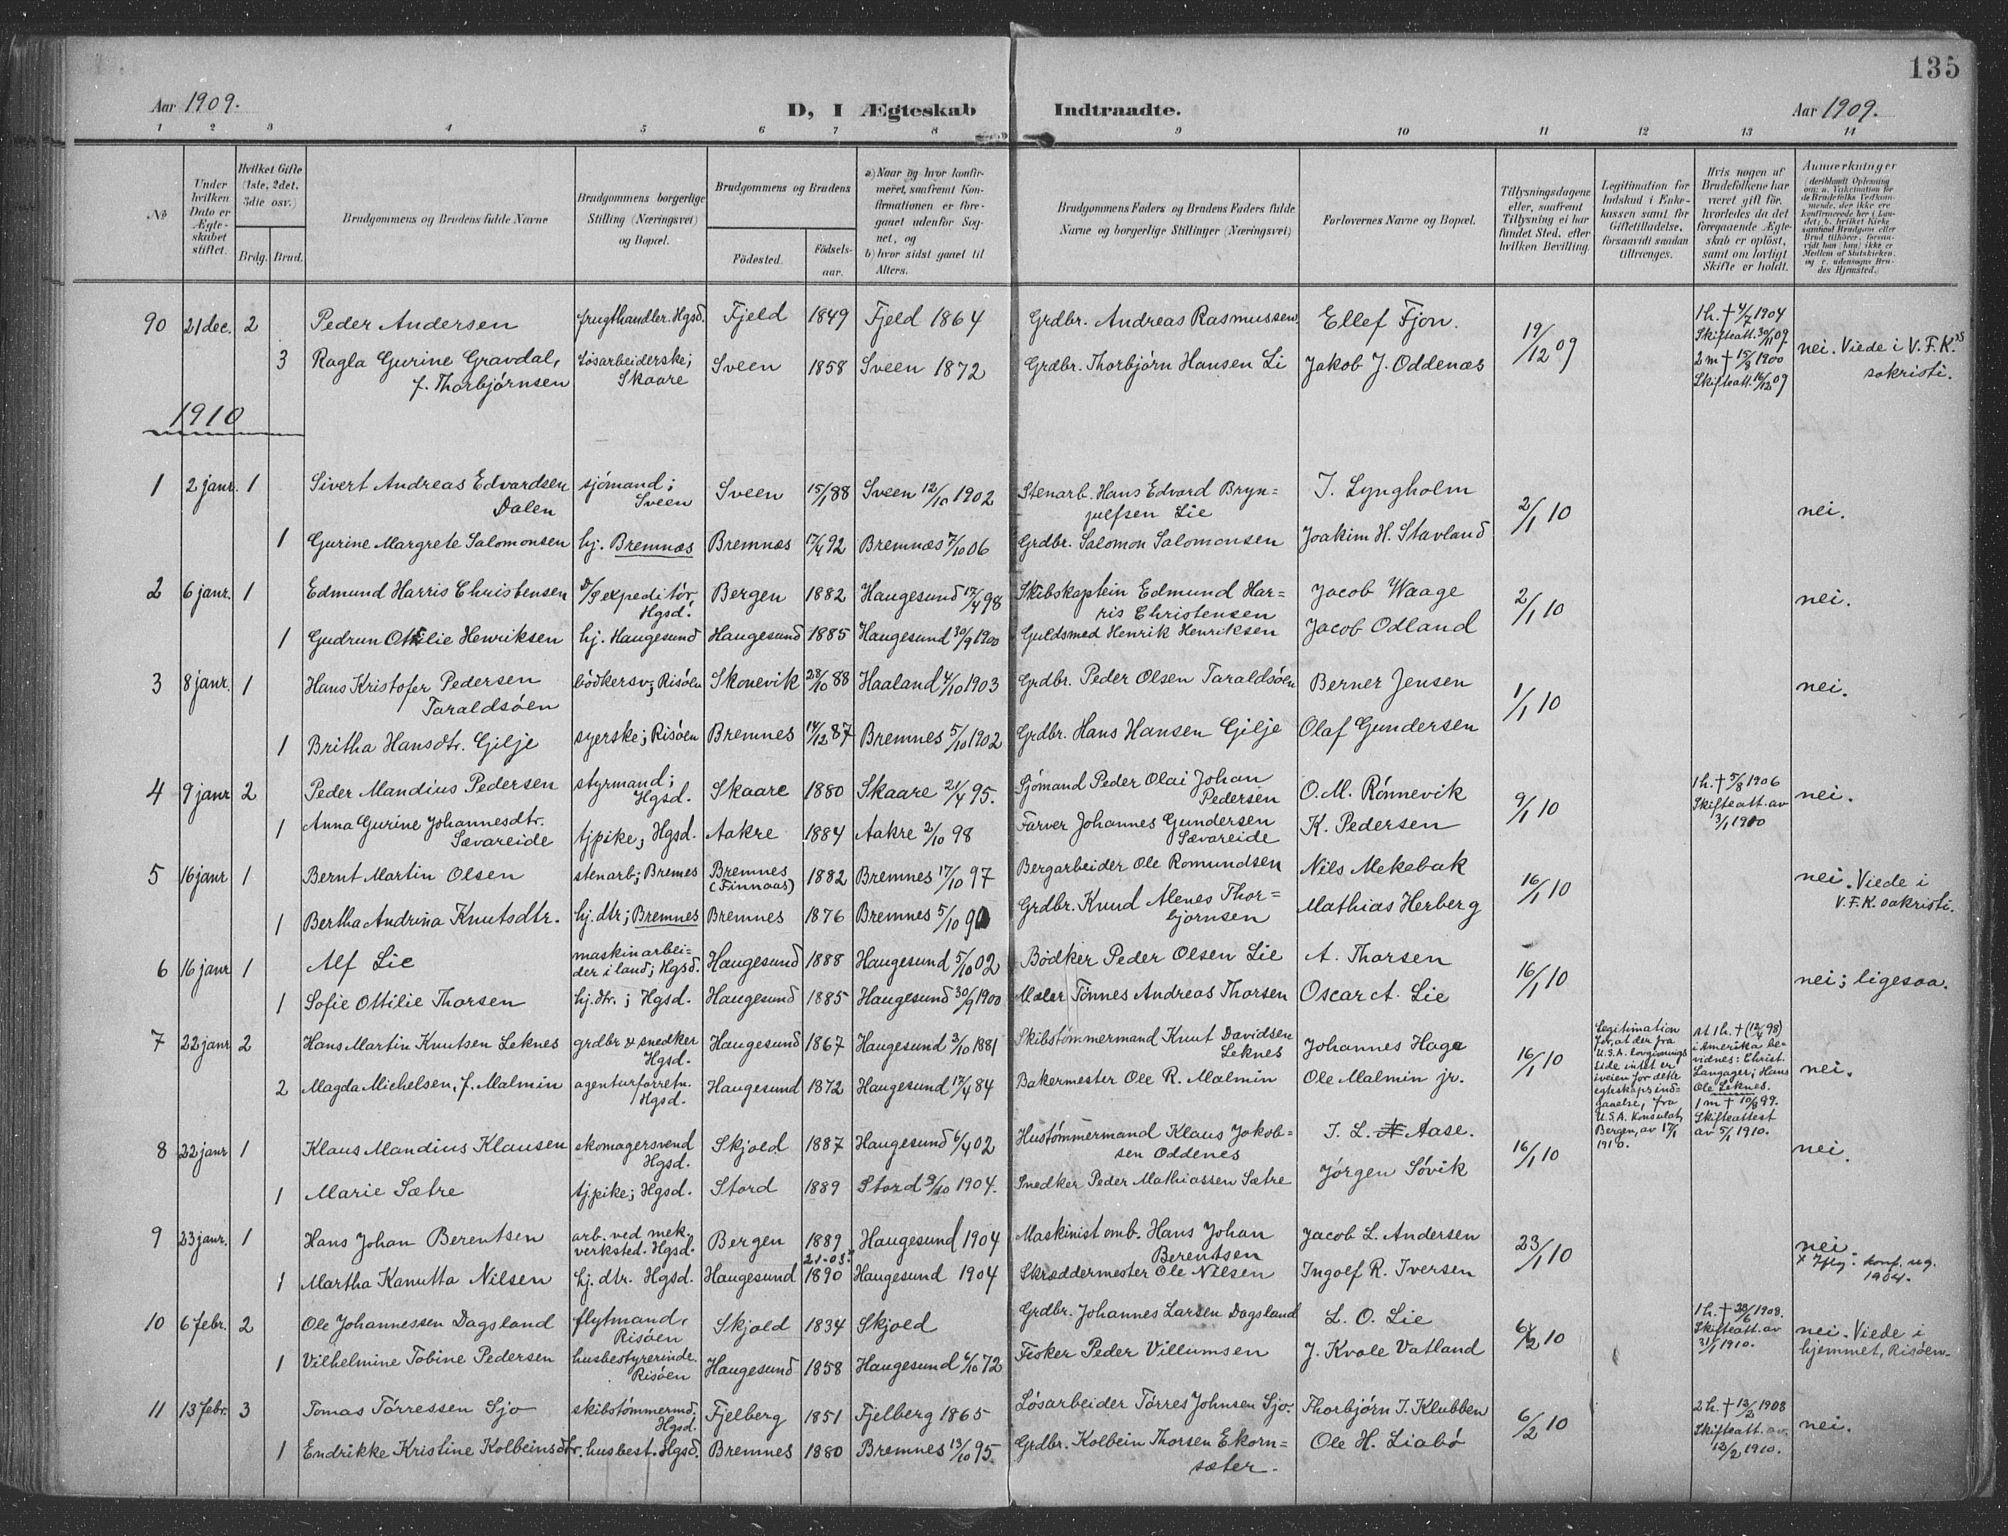 135
Aar 1909. D, I Ægteskab Indtraadte. Aar 1909.
1 2 3 4 5 6 7 8 9 10 11 12 13 14
№
Under hvilken Dato er Ægteskabet stiftet.
Hvilket Gifte (1ste, 2det, 3die osv.)
Brdg. Brud.
Brudgommens og Brudens fulde Navne
Brudgommens borgerlige Stilling (Næringsvei) og Bopæl.
Brudgommens og Brudens
Fødested. Fødselsaar.
a) Naar og hvor konfirmeret, saafremt Konfirmationen er foregaaet udenfor Sognet, og
b) hvor sidst gaaet til Alters.
Brudgommens Faders og Brudens Faders fulde Navne og borgerlige Stillinger (Næringsvei)
Forlovernes Navne og Bopæl.
Tillysningsdagene eller, saafremt Tillysning ei har fundet Sted, efter hvilken Bevilling.
Legitimation for Indskud i Enkekassen samt for Giftetilladelse, forsaavidt saadan tiltrænges.
Hvis nogen af Brudefolkene har været gift før, hvorledes da det foregaaende Ægteskab er opløst, samt om lovligt Skifte er holdt.
Anmerkninger
(deriblandt Oplysning om: a. Vakcination for de Brudefolks Vedkommende, der ikke ere konfirmerede her i Landet; b. hvilket Kirkesamfund Brudgom eller Brud tilhører, forsaavidt han (hun) ikke er Medlem af Statskirken, og c. udensogns Brudes Hjemsted.)
90 21 dec. 2 Peder Andersen frugthandler. Hgsd. Fjeld 1849 Fjeld 1864 Grdbr. Andreas Rasmussen. Ellef Fjon. 19/12 09 1 h. † 4/7 1904 Skifteatt. 30/11 09
3 Ragla Gurine Gravdal, f. Thorbjørnsen løsarbeiderske; Skaare Sveen 1858 Sveen 1872 Grdbr. Thorbjørn Hansen Li Jakob J. Oddenæs 2 m † 15/8 1900 Skifteatt. 16/12 09 nei. Viede i V.F.K.s sakristi.
1910
1 2 janr. 1 Sivert Andreas Edvardsen Dalen sjömand; Sveen Sveen 15/1 88 Sveen 12/10 1902 Stenarb. Hans Edvard Brynjulfsen Lie I. Lyngholm 2/1 10 nei.
1 Gurine Margrete Salomonsen hj. Bremnæs Bremnæs 17/4 92 Bremnæs 7/10 06 Grdbr. Salomon Salomonsen Joakim H. Stavland
2 6 janr. 1 Edmund Harris Christensen D/S expeditör, Hgsd. Bergen 1882 Haugesund 17/4 98 Skibskaptein Edmund Harris Christensen Jacob Waage 2/1 10 nei.
1 Gudrun Ottilie Henriksen hj. Haugesund Haugesund 1885 Haugesund 30/9 1900 Guldsmed Henrik Henriksen Jacob Odland
3 8 janr. 1 Hans Kristofer Pedersen Taraldsöen bödkersv; Risöen Skonevik 28/10 88 Haaland 4/10 1903 Grdbr. Peder Olsen Taraldsöen Berner Jensen 1/1 10 nei.
1 Britha Hansdtr. Gilje syerske; Risöen Bremnes 14/12 87 Bremnes 5/10 1902 Grdbr. Hans Hansen Gilje Olaf Gundersen
4 9 janr 2 Peder Mandius Pedersen styrmand; Hgsd. Skaare 1880 Skaare 21/4 95. Sjömand Peder Olai Johan Pedersen O. M. Rönnevik 9/1 10 1 h. † 5/8 1906 Skifteatt. av 3/1 1910 nei.
1 Anna Gurine Johannesdtr. Sævareide tjpike; Hgsd. Aakre 1884 Aakre 2/10 98 Farver Johannes Gundersen Sævareide K. Pedersen
5 16 janr 1 Bernt Martin Olsen stenarb; Bremes Bremnes (Finnaas) 1882 Bremnes 17/10 97 Bergarbeider Ole Romundsen Nils Mekebak 16/1 10 nei. Viede i V.F.K. sakristi.
1 Bertha Andrina Knutsdtr. hj. dtr; Bremnes Bremnes 1876 Bremnes 5/10 90 Grdbr. Knud Alenes Thorbjörnsen Mathias Herberg
6 16 janr 1 Alf Lie maskinarbeider i land; Hgsd. Haugesund 1888 Haugesund 5/10 02 Bödker Peder Olsen Lie A. Thorsen 16/1 10 nei; ligesaa.
1 Sofie Ottilie Thorsen hj. dtr.; Hgsd. Haugesund 1885 Haugesund 30/9 1900 Maler Tönnes Andreas Thorsen Oscar A. Lie
7 22 janr 2 Hans Martin Knutsen Leknes grdbr & snedker Hgsd. Haugesund 1867 Haugesund 3/10 1881 Skibstömmermand Knut Davidsen Leknes Johannes Hage 16/1 10 Legitimation for, at der fra U.S.A. lovgivnings side intet er iveien for dette egteskaps indgaaelse, fra U.S.A. Konsulat, Bergen, av 17/1 1910. at 1 h. † (12/4 98) i Amerika bevidnes: Christ. Langager; Hans Ole Leknes. nei.
2 Magda Michelsen, f. Malmin agenturforretn. Hgsd. Haugesund 1872 Haugesund 17/4 84 Bakermester Ole R. Malmin Ole Malmin jr. 1 m † 10/6 99. Skifteattest av 5/1 1910.
8 22 janr 1 Klaus Mandius Klausen skomagersvend Hgsd. Skjold 1887 Haugesund 6/4 02 Hustömmermand Klaus Jakobsen Oddenes I. L. Aase. 16/1 10 nei.
1 Marie Sætre tjpike; Hgsd. Stord 1889 Stord 9/10 1904. Snedker Peder Mathiassen Sætre Jörgen Sövik
9 23 janr. 1 Hans Johan Berentsen arb. ved mek. verksted. Hgsd. Bergen 1889 Haugesund 1904 Maskinist omb. Hans Johan Berentsen Jacob L. Andersen 23/1 10 nei.
1 Martha Kanutta Nilsen hj. dtr. Hgsd. Haugesund 1890 Haugesund 1904 Skræddermester Ole Nilsen Ingolf R. Iversen konf. reg. 1904.
10 6 febr. 2 Ole Johannessen Dagsland flytmand, Risöen Skjold 1834 Skjold Grdbr. Johannes Larsen Dagsland L. O. Lie 6/2 10 1 h. † 28/6 1908. Skifteatt. av 31/1 1910. nei. Viede i hjemmet, Risöen.
1 Vilhelmine Tobine Pedersen husbestyrerinde. Risöen Haugesund 1858 Haugesund 6/10 72 Fisker Peder Villumsen J. Kvale Vatland
11 13 febr. 3 Tomas Törressen Sjo skibstömmermd. Hgsd. Fjelberg 1851 Fjelberg 1865 Lösarbeider Törres Johnsen Sjo. Thorbjørn T. Klubben 6/2 10 2 h. † 13/2 1908 Skifteatt. av 12/2 1910. nei.
1 Endrikke Kristine Kolbeinsdtr. husbest. Hgsd. Bremnes 1880 Bremnes 13/10 95. Grdbr. Kolbein Thorsen Ekornsæter. Ole H. Liabö